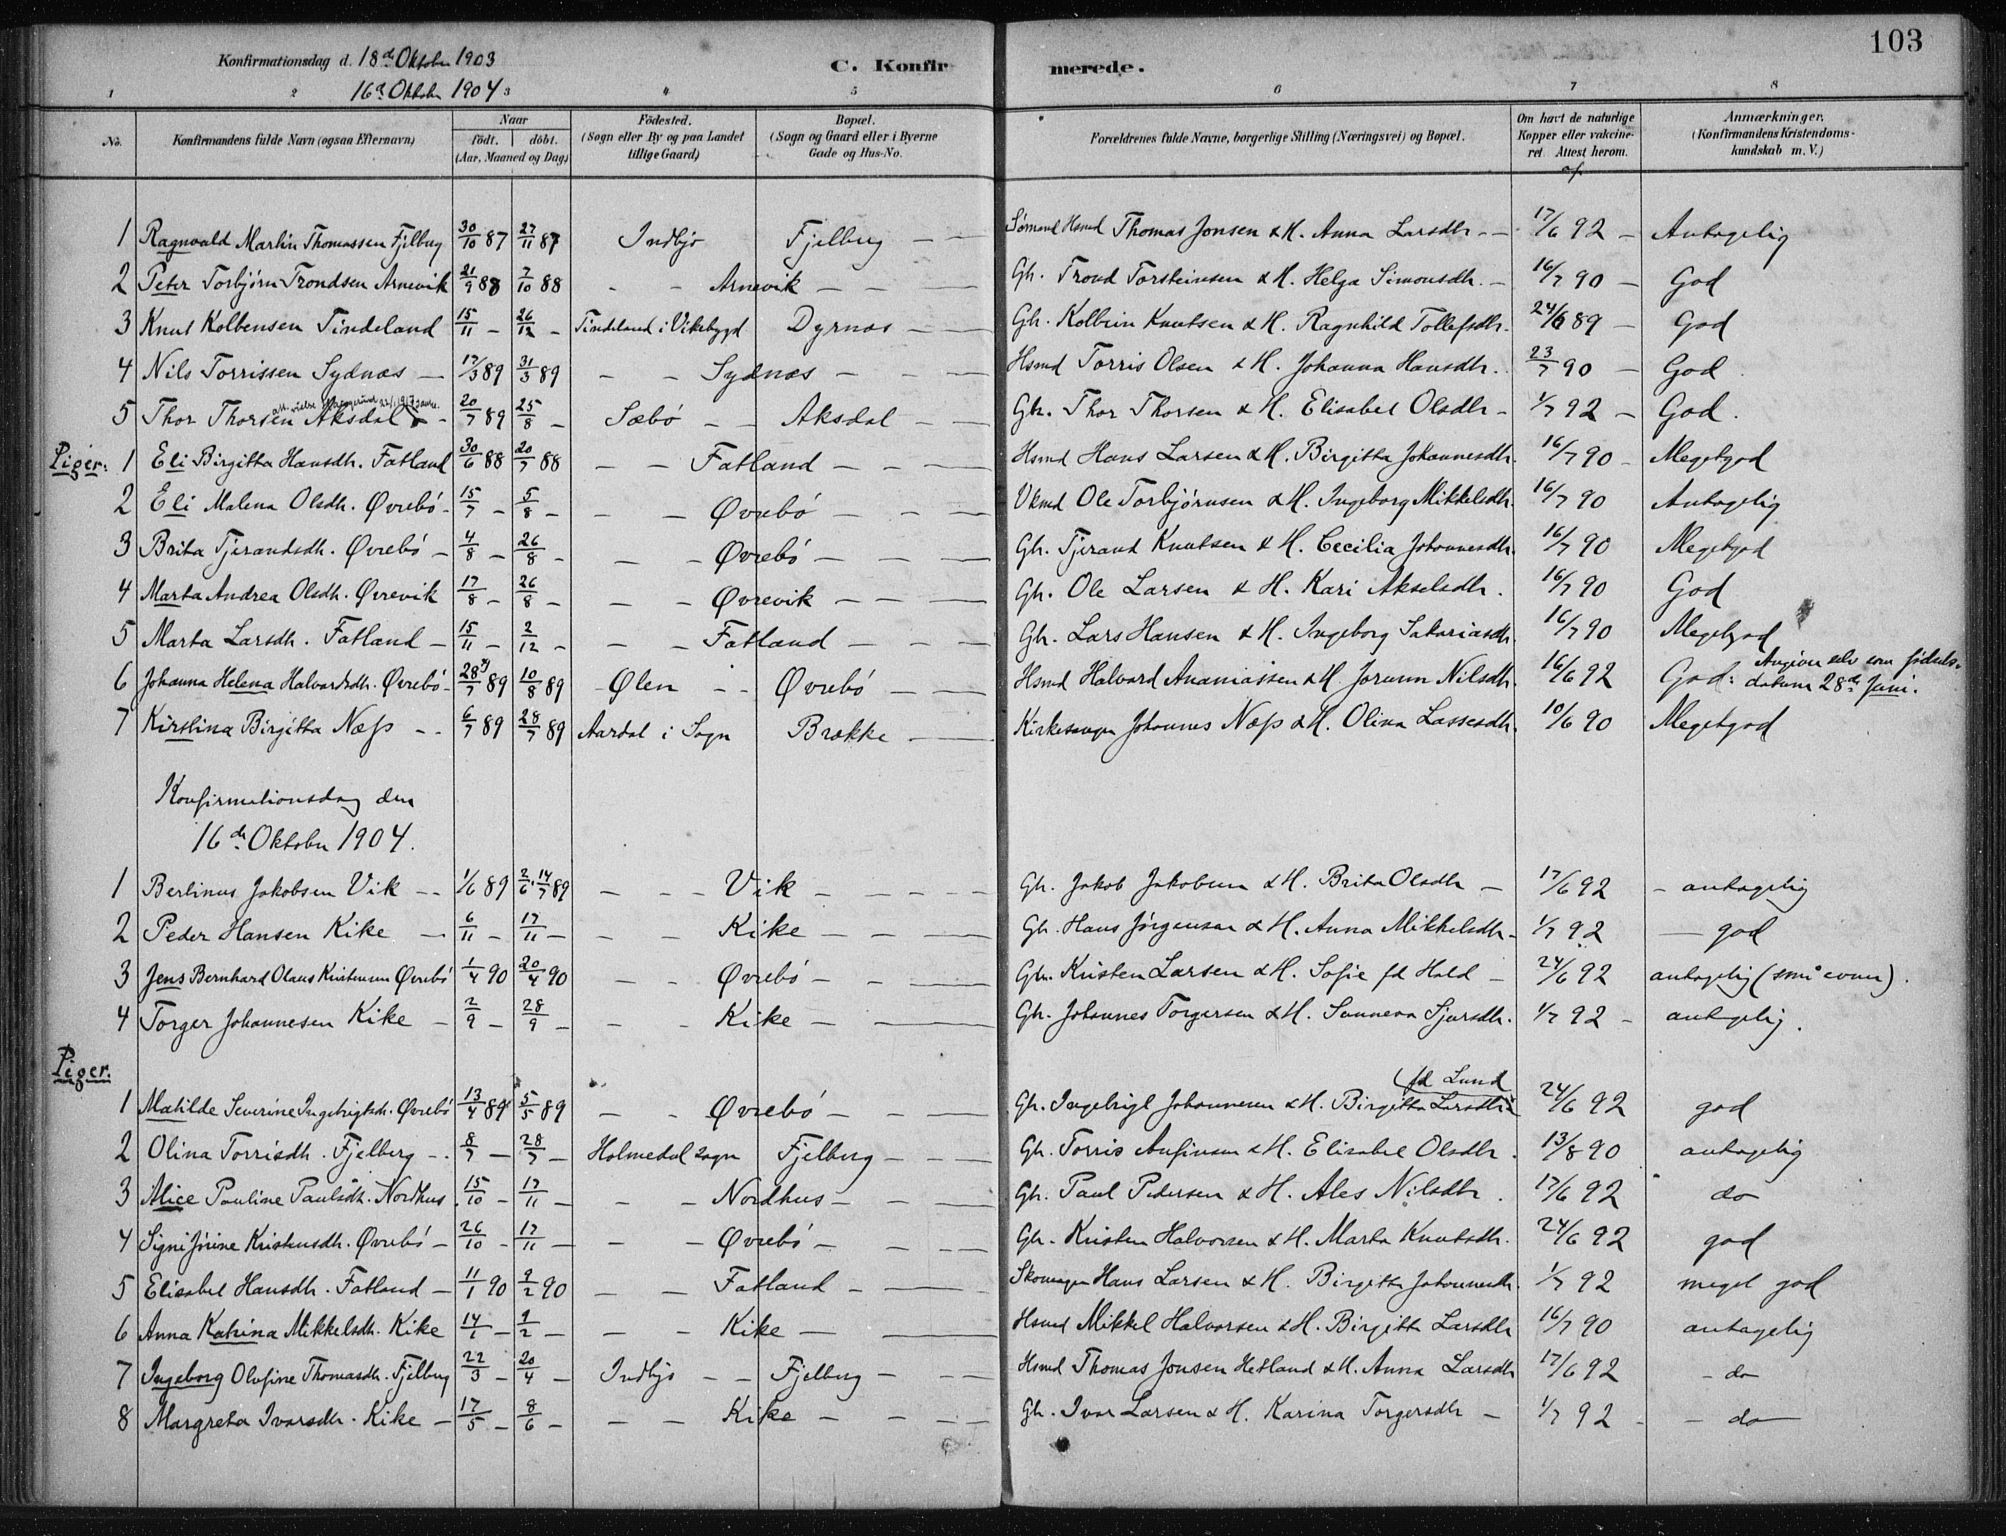 103
Konfirmationsdag d. 18de Oktober 1903
16de Oktober 1904
C. Konfirmerede.
1 2 3 4 5 6 7 8
No. Konfirmandens fulde Navn (ogsaa Efternavn) Naar født. døbt. (Aar, Maaned og Dag) Fødested. (Sogn eller By og paa Landet tillige Gaard) Bopæl. (Sogn og Gaard eller i Byerne Gade og Hus-No. Forældrenes fulde Navne, borgerlige Stilling (Næringsvei) og Bopæl. Om havt de naturlige Kopper eller vakcineret Attest herom. Anmærkninger. (Konfirmandens Kristendomskundskab m. V.)
1 Ragnvald Martin Thomassen Fjelberg 30/10 87 27/11 87 Indbjo Fjelberg — — Sømand Hsmd Thomas Jonsen & H. Anna Larsdtr — 17/6 92 — Antagelig
2 Peter Torbjørn Trondsen Arnevik 21/9 88 7/10 88 - - Arnevik — — Gbr. Trond Torsteinsen & H. Helga Simonsdtr. — 16/7 90 — God
3 Knut Kolbensen Tindeland 15/11 — 26/12 — Tindeland i Vikebygd Dyrnes — — Gbr. Kolbein Knutsen & H. Ragnhild Tollefsdtr. 24/6 89 — God
4 Nils Torrissen Sydnæs — 17/3 89 31/3 89 — — Sydnæs — — Hsmd Torris Olsen & H. Johanna Hansdtr. 23/7 90 — God
5 Thor Thorsen Aksdal 20/7 89 25/8 — Sæbø — — Aksdal — — Gbr. Thor Thorsen & H. Elisabet Olsdtr — 1/7 92 — God.
Piger: 1 Eli Birgitta Hansdtr. Fatland 30/6 88 20/7 88 — — Fatland — — Hsmd Hans Larsen & H. Birgitta Johannesdtr. 16/7 90 — Megetgod
2 Eli Malena Olsdtr. Øvrebø — 15/7 — 5/8 — — — Øvrebø — — Ole Torbjørnsen & H. Ingeborg Mikkelsdtr. 16/7 90 Antagelig
3 Brita Tjerandsdtr. Øvrebø — 4/8 — 26/8 — — — Øvrebø — — Gbr. Tjerand Knutsen & H. Cecilia Johannesdtr. 16/7 90 Megetgod
4 Marta Andrea Olsdtr. Øvrevik 17/8 — 26/8 — — — Øvrevik — — Gbr. Ole Larsen & H. Kari Akselsdtr. 16/7 90 God
5 Marta Larsdtr. Fatland — 15/11 — 2/12 — — — Fatland — — Gbr. Lars Hansen & H. Ingeborg Sakariasdtr. 16/7 90 Megetgod
6 Johanna Helena Halvardsdtr. Øvrebø — 28/7 89 10/8 89 — Ølen — — Øvrebø — — Hsmd Halvard Ananiassen & H. Jorunn Nilsdtr. 16/6 92 God: Angiver selv som fødselsdatum 28de Juni.
7 Kirstina Birgitta Næss — 6/7 89 28/7 89 Aardal i Sogn Brække — — Kirkesanger Johannes Næss & H. Olina Lassesdtr. 10/6 90 Megetgod
Konfirmationsdag den
16de Oktober 1904.
1 Bertinus Jakobsen Vik — 1/6 89 2/6. 14/7 89 — — Vik — — Gbr. Jakob Jakobsen & H. Brita Olsdtr — 17/6 92 — antagelig
2 Peder Hansen Kike — 6/11 — 17/11 — — — Kike — — Gbr. Hans Jørgensen & H. Anna Mikkelsdtr. — 1/7 92 — god
3 Jens Bernhard Olaus Kristensen Øvrebø 1/4 90 20/4 90 — — Øvrebø — — Gbr. Kristen Larsen & H. Sofie fd Hald — 24/6 92 antagelig (små evner).
4 Torger Johannesen Kike — 2/9 — 28/9 — — — Kike — — Gbr. Johannes Torgersen & H. Sunneva Sjursdtr. 1/7 92 — antagelig.
Piger.
1 Matilde Severine Ingebrigtsdr. Øvrebø 13/4 89 5/5 89 — — Øvrebø — — Gbr. Ingebrigt Johannesen & H. Birgitta Larsdtr (fd Lund 24/6 92 god
2 Olina Torrisdtr. Fjelberg — 8/7 — 28/7 — Holmedal sogn Fjelberg — — Gbr. Torris Anfinsen & H. Elisabet Olsdtr. 13/8 90 antagelig
3 Alice Pauline Paulsdtr. Nordhus 15/10 — 17/11 — — — Nordhus — — Gbr. Paul Pedersen & H. Ales Nilsdtr. 17/6 92 do
4 Signi Jørine Kristensdtr. Øvrebø — 26/10 — 17/11 — — — Øvrebø — — Gbr. Kristen Halvorsen & H. Marta Knutsdtr. 24/6 92 god
5 Elisabet Hansdtr. Fatland — 11/1 90 9/2 90 — — Fatland — — Hans Larsen & H. Birgitta Johannesdtr. 1/7 92 meget god
6 Anna Katrina Mikkelsdtr. Kike 14/1 — 9/2 — — — Kike — — Hsmd Mikkel Halvorsen & H. Birgitta Larsdtr 16/7 90 antagelig
7 Ingeborg Olufine Thomasdtr. Fjelberg 22/3 — 20/4 — Indbjo — — Fjelberg — — Hsmd Thomas Jonsen Hetland & H. Anna Larsdtr 17/6 92 — do
8 Margreta Ivarsdtr. Kike — 17/5 — 8/6 — — — Kike — — Gbr. Ivar Larsen & H. Karina Torgersdtr — 1/7 92 — do —